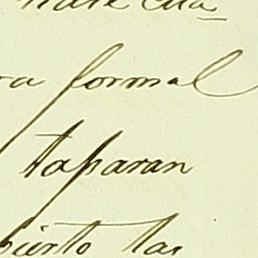 ra formal
taparan
bierto las